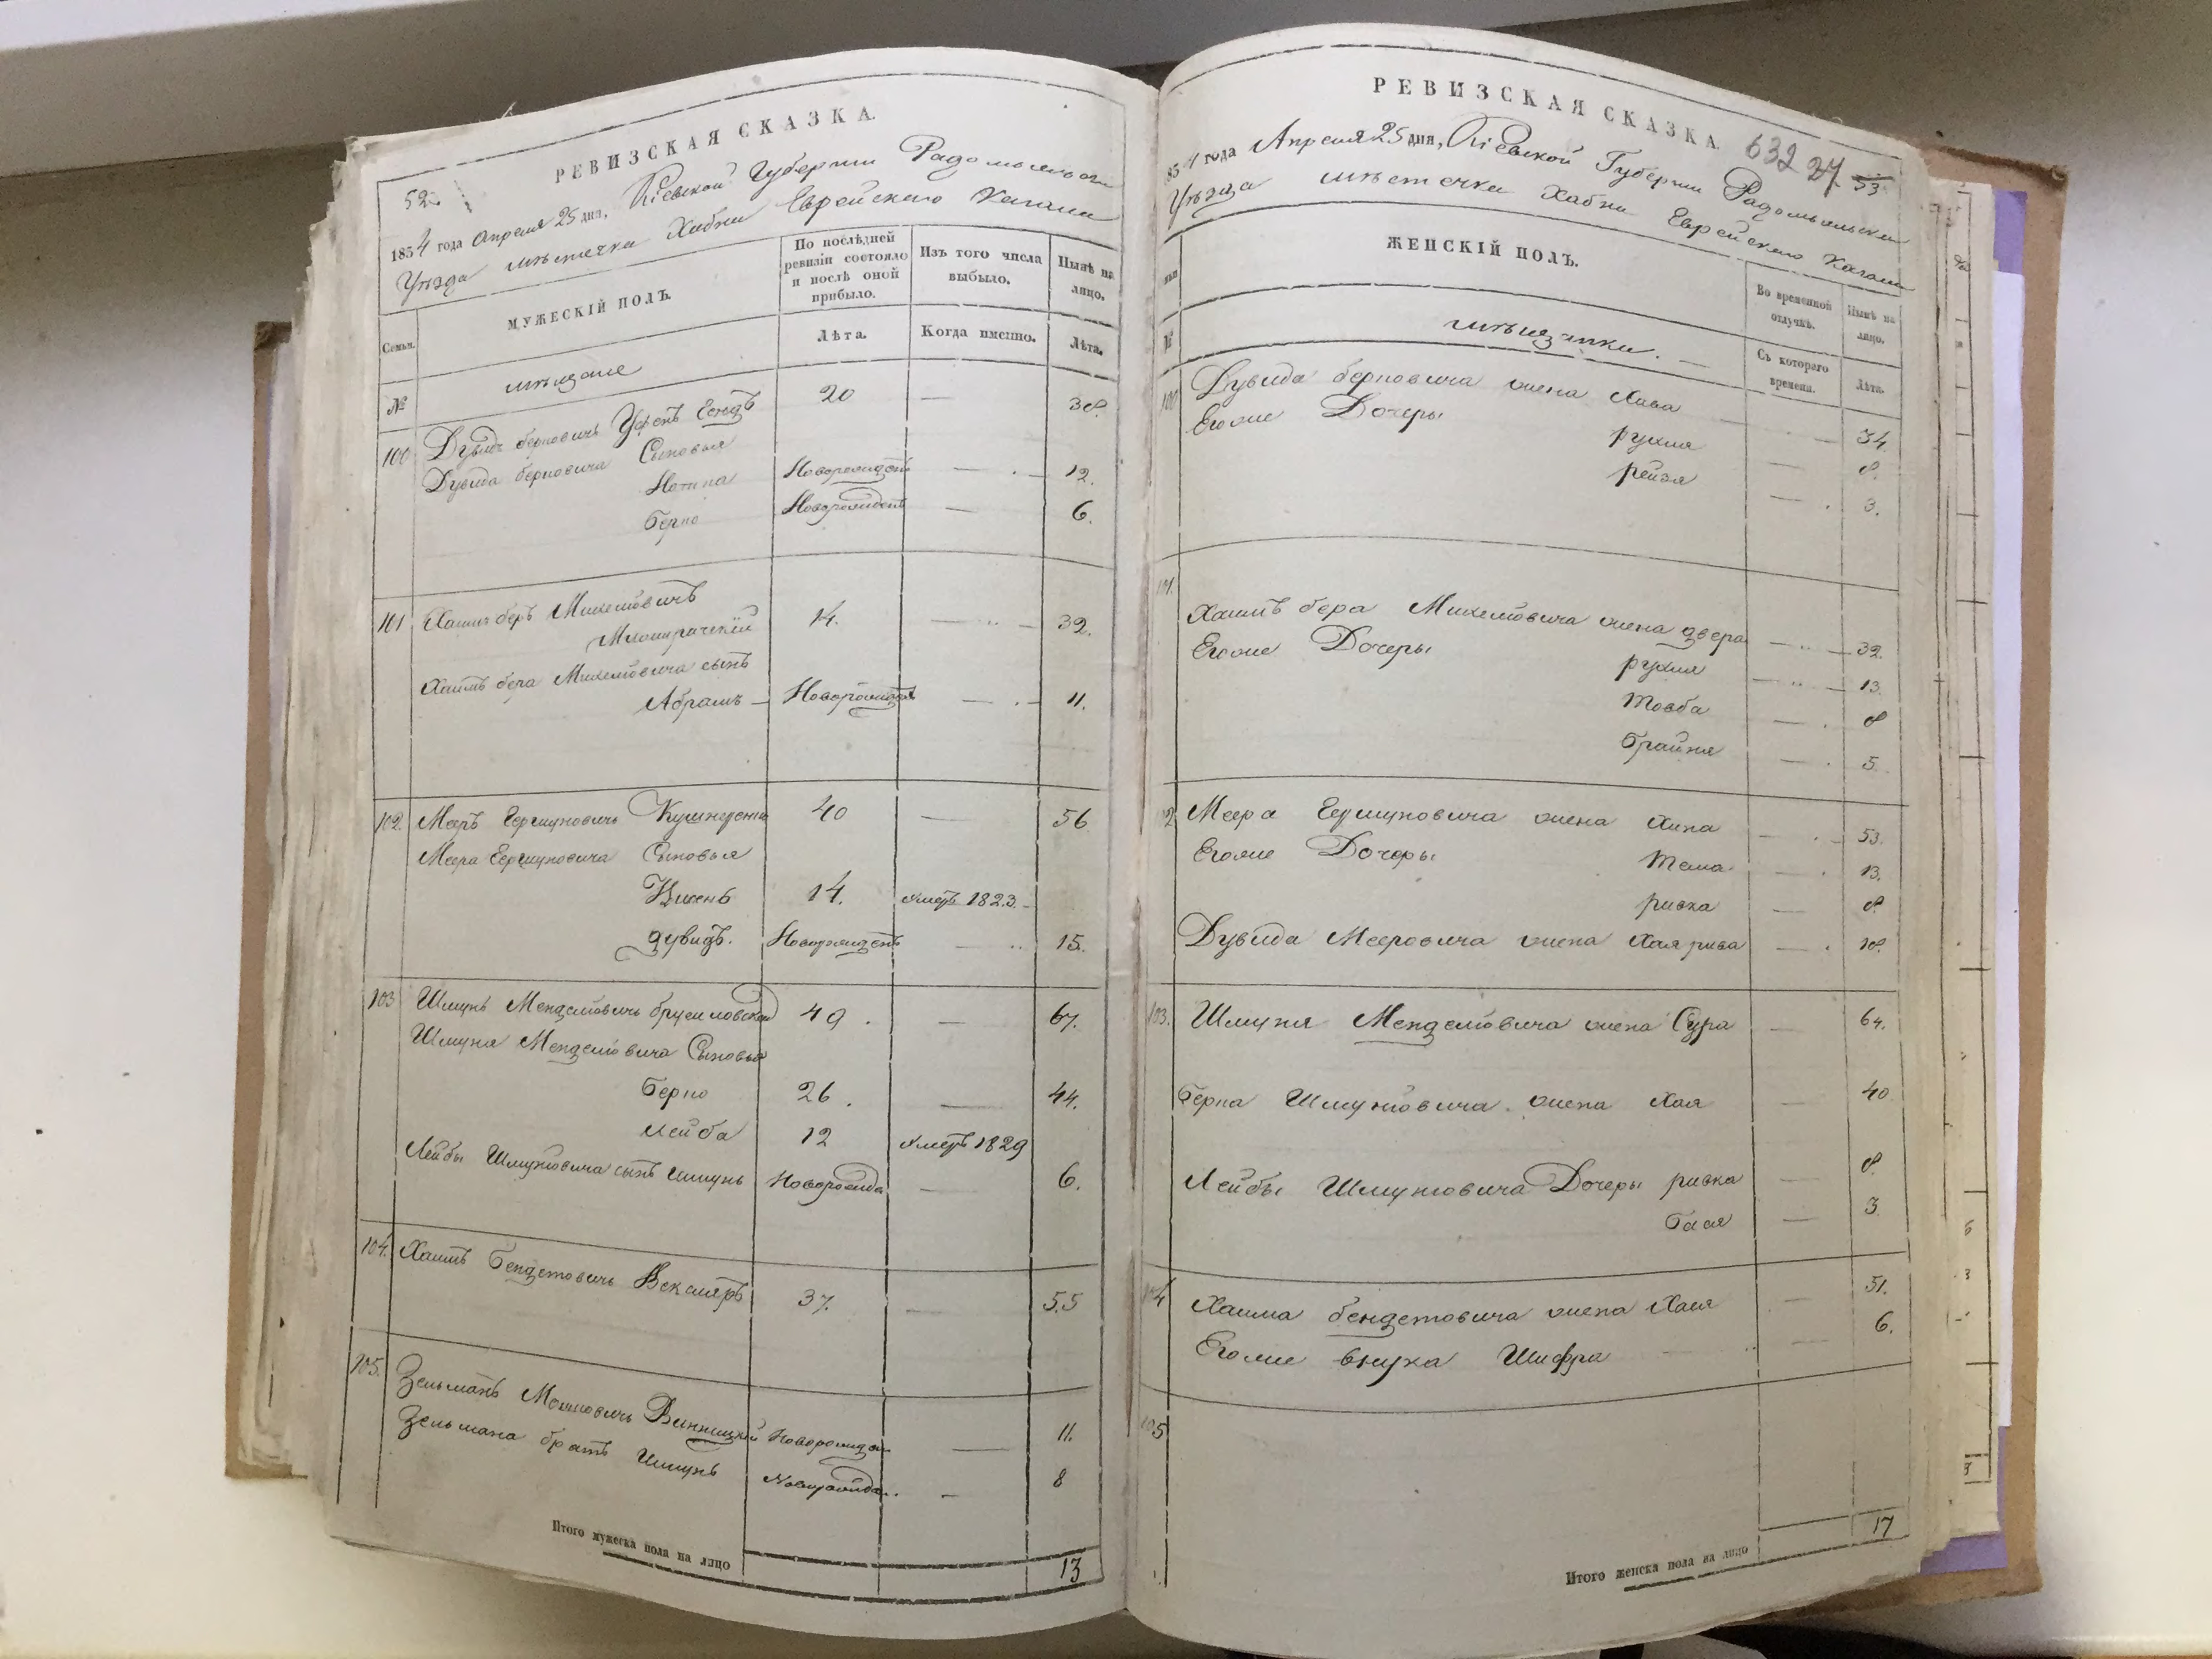 52
РЕВИЗСКАЯ СКАЗКА.
1854 года Апреля 25 дня, Кіевской Губерніи Радомысльскаго
Уѣзда мѣстечка Хабни Еврейскаго Кагала
Семьи.
МУЖЕСКІЙ ПОЛЪ.
По послѣдней ревизіи состояло и послѣ оной прибыло.
Изъ того числа выбыло.
Нынѣ на лицо.
№
мѣщане
Лѣта.
Когда именно.
Лѣта.
100 Дувидъ Берковичъ 20 — 38.
Дувида Берковича Сыновья
Новорожденъ — 12.
Берко Новорожденъ — 6.
101 Хаимъ Беръ Михелювичъ 14. — 32.
Хаимъ Бера Михелювича сынъ
Абрамъ — Новорожден — 11.
102 Мееръ Гершуновичъ 40 — 56
Меера Гершуновича Сыновья
14. умеръ 1823. —
Дувидъ. Новорожденъ — 15.
103 Шмунь Менделювичъ Брусиловской 49. — 67.
Шмуня Менделювича Сыновья
Берко 26. — 44.
Лейба 12 умеръ 1829
Лейбы Шмулювича сынъ Шмунь Новорожде — 6.
104. Хаимъ Бендетовичъ Векслеръ 37. — 55
105. Зельманъ Мошковичъ Винницкій Новорожден — 11.
Зельмана братъ Шмунь Новорожде.. — 8
Итого мужеска пола на лицо 13
РЕВИЗСКАЯ СКАЗКА.
632 27 53
1854 года Апреля 25 дня, Кіевской Губерніи Радомысльскаго
Уѣзда мѣстечка Хабни Еврейскаго Кагала
№
ЖЕНСКІЙ ПОЛЪ.
Во временной отлучкѣ.
Нынѣ на лицо.
мѣщанки. —
Съ котораго времени.
Лѣта.
100 Дувида Берковича жена Хава — 34
Егоже Дочеры рухля — 8.
рейзя — 3.
101. Хаимъ Бера Михелювича жена Двера — 32.
Егоже Дочеры рухля — 13
Товба — 8
Брайна — 5.
102 Меера Гершуновича жена Хипа — 53.
Егоже Дочеры Тема — 13.
ривка — 8.
Дувида Мееровича жена Хая рива — 18.
103. Шмуня Менделювича жена Сура — 64.
Берка Шмулювича жена Хая — 40
Лейбы Шмулювича Дочеры ривка — 8.
Бася — 3
104 Хаима Бендетовича жена Хая — 51.
Егоже внука Шифра — 6.
105
Итого женска пола на лицо 17